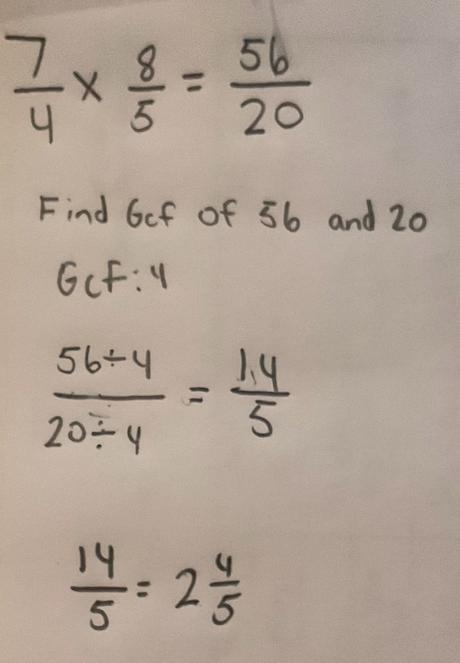 7/4 × 8/5 = 56/20
Find Gcf of 56 and 20
Gcf: 4
56÷4/20÷4 = 14/5
14/5 = 2 4/5